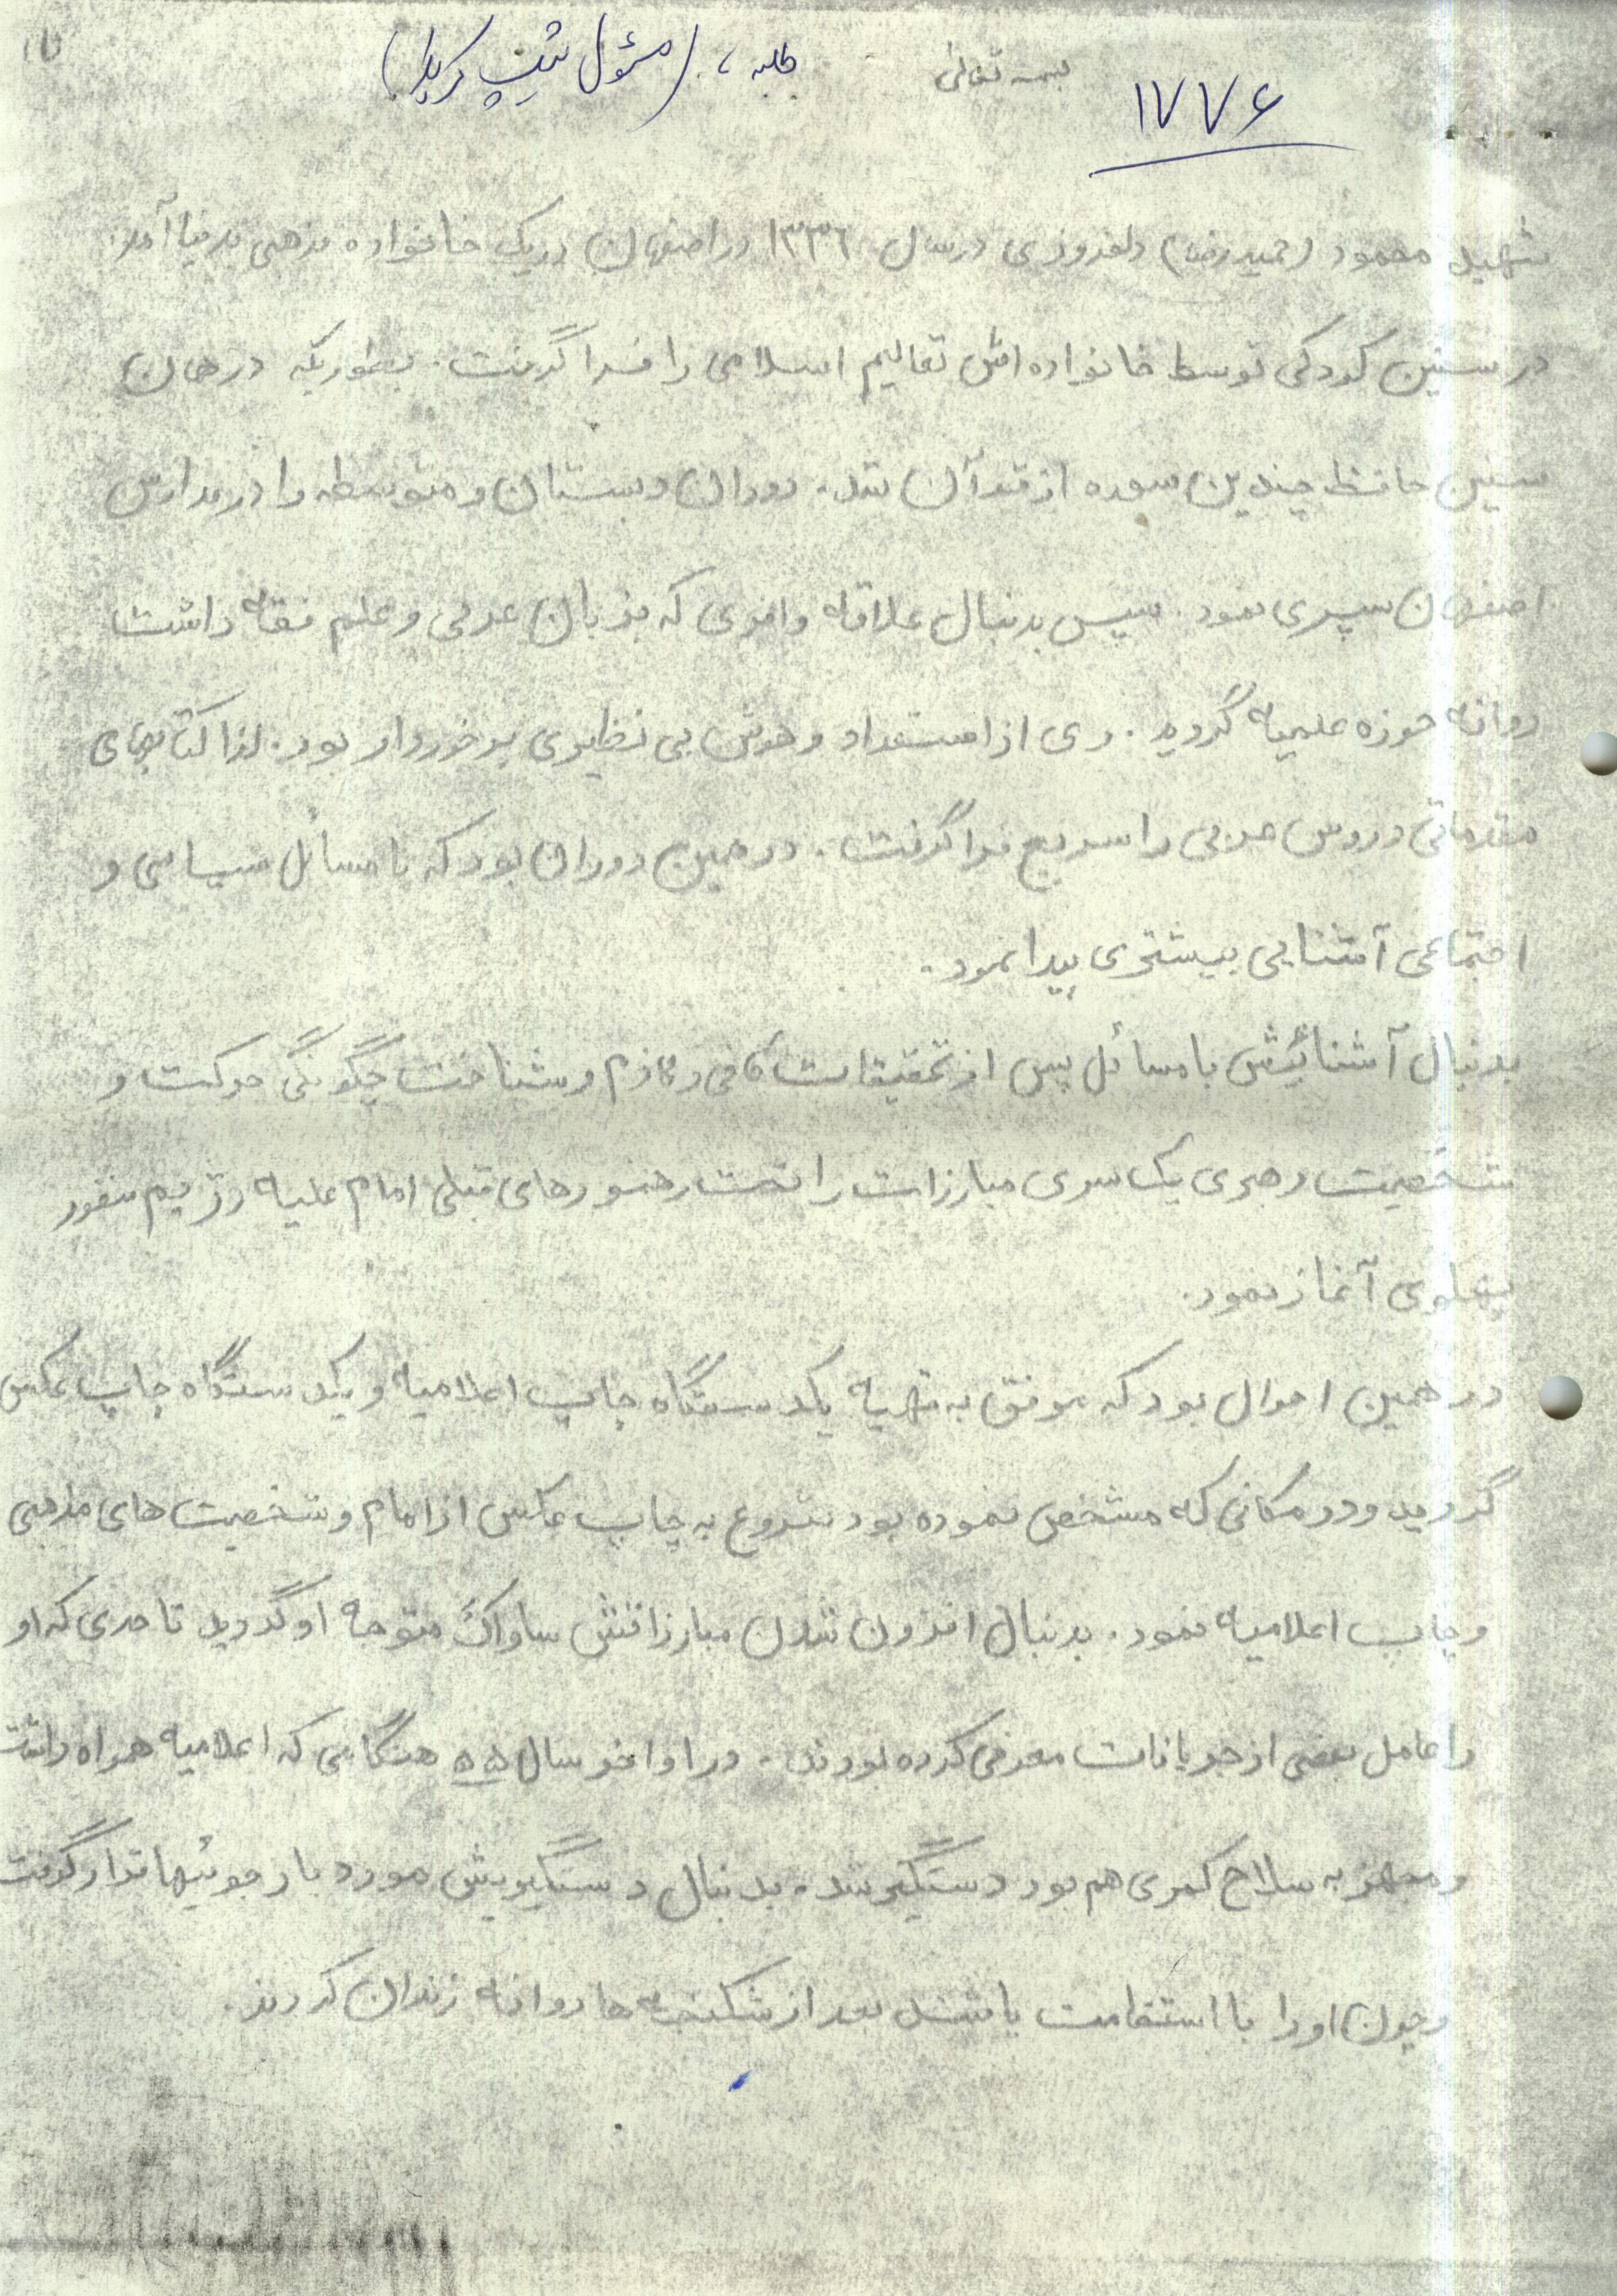 بسمه تعالی
طلبه، (مسؤل تیپ کربلا)
۱۷۷۶
شهید محمود (حمیدرضا) دلفروزی در سال ۱۳۳۶ در اصفهان در یک خانواده مذهبی بدنیا آمد.
در سنین کودکی توسط خانواده اش تعالیم اسلامی را فرا گرفت. بطوریکه در همان
سنین حافظ چندین سوره از قرآن شد. دوران دبستان و متوسطه را در مدارس
اصفهان سپری نمود. سپس بدنبال علاقه وافری که بزبان عربی و علم فقه داشت
روانه حوزه علمیه گردید. وی از استعداد و هوش بی نظیری برخوردار بود. لذا کتابهای
مقدماتی دروس عربی را سریع فرا گرفت. در همین دوران بود که با مسائل سیاسی و
اجتماعی آشنایی بیشتری پیدا نمود.
بدنبال آشنائیش با مسائل پس از تحقیقات کافی و لازم و شناخت چگونگی حرکت و
شخصیت رهبری یک سری مبارزات را تحت رهنمودهای قبلی امام علیه رژیم منفور
پهلوی آغاز نمود.
در همین احوال بود که موفق به تهیه یکدستگاه چاپ اعلامیه و یکدستگاه چاپ عکس
گردید و در مکانی که مشخص نموده بود شروع به چاپ عکس از امام و شخصیت های مذهبی
و چاپ اعلامیه نمود. بدنبال افزون شدن مبارزاتش ساواک متوجه او گردید تا حدی که او
را عامل بعضی از جریانات معرفی کرده بودند. در اواخر سال ۵۵ هنگامی که اعلامیه همراه داشت
و مجهز به سلاح کمری هم بود دستگیر شد. بدنبال دستگیریش مورد بازجوئیها قرار گرفت
و چون او را با استقامت یافتند بعد از شکنجه ها روانه زندان کردند.